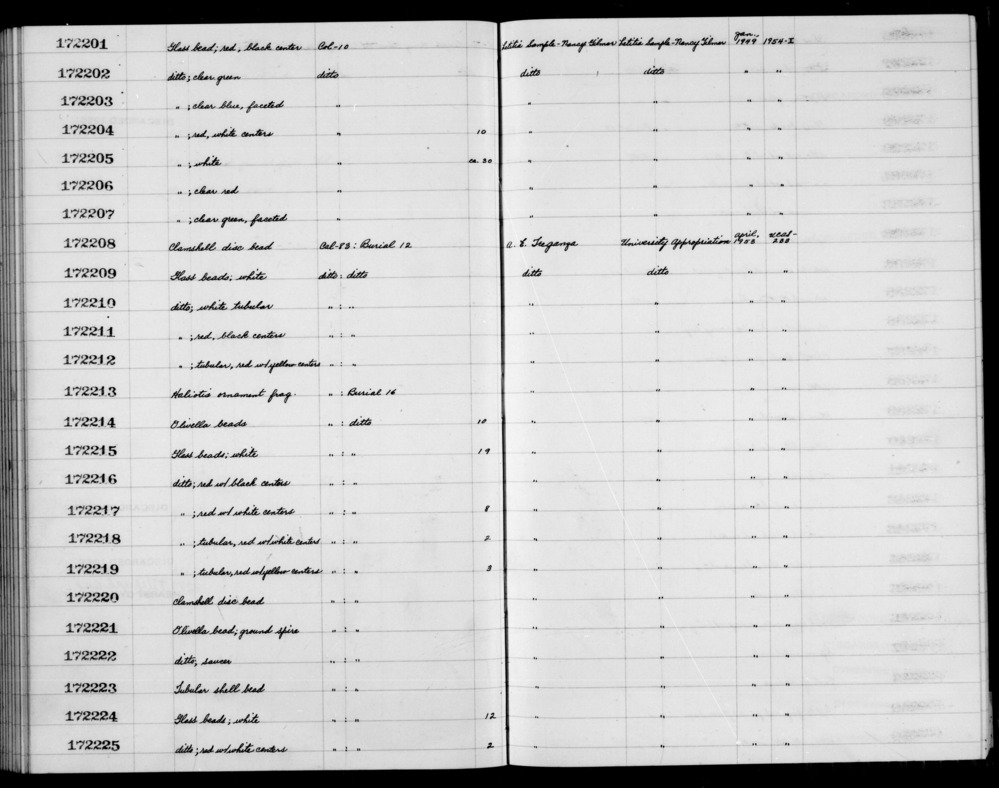 172201 Glass bead; red, black center Col-10 Letitia Sample - Nancy Gilmor Letitia Sample - Nancy Gilmor Jan. 1949 1954-I
172202 ditto; clear green ditto ditto ditto " "
172203 " ; clear blue, faceted " " " " "
172204 " ; red, white centers " 10 " " " "
172205 " ; white " ca. 30 " " " "
172206 " ; clear red " " " " "
172207 " ; clear green, faceted " " " " "
172208 Clamshell disc bead Cal-83 : Burial 12 University Appropriation April, 1953 ucas-
172209 Glass beads; white ditto : ditto ditto ditto " "
172210 ditto; white tubular " : " " " " "
172211 " ; red, black centers " : " " " " "
172212 " ; tubular, red w/yellow centers " : " " " " "
172213 Haliotis ornament frag. " : Burial 16 " " " "
172214 Olivella beads " : ditto 10 " " " "
172215 Glass beads; white " : " 19 " " " "
172216 ditto; red w/ black centers " : " " " " "
172217 " ; red w/ white centers " : " 8 " " " "
172218 " ; tubular, red w/white centers " : " 2 " " " "
172219 " ; tubular, red w/yellow centers " : " 3 " " " "
172220 Clamshell disc bead " : " " " " "
172221 Olivella bead; ground spire " : " " " " "
172222 ditto, saucer " : " " " " "
172223 Tubular shell bead " : " " " " "
172224 Glass beads; white " : " 12 " " " "
172225 ditto; red w/white centers " : " 2 " " " "